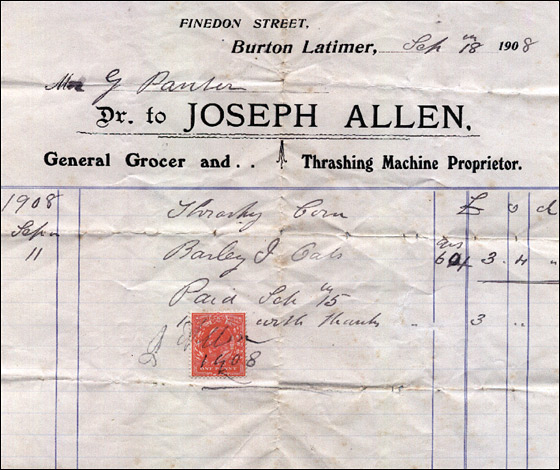 FINEDON STREET,
Burton Latimer, Sep 18 1908
Mr G Panter
Dr. to JOSEPH ALLEN,
General Grocer and . . Thrashing Machine Proprietor.
1908 Thrashing Corn £ s d
Sep 11 Barley & Oats qrs 3 . 4 "
Paid Sep 15
with thanks " 3 "
J Allen
1908
ONE PENNY